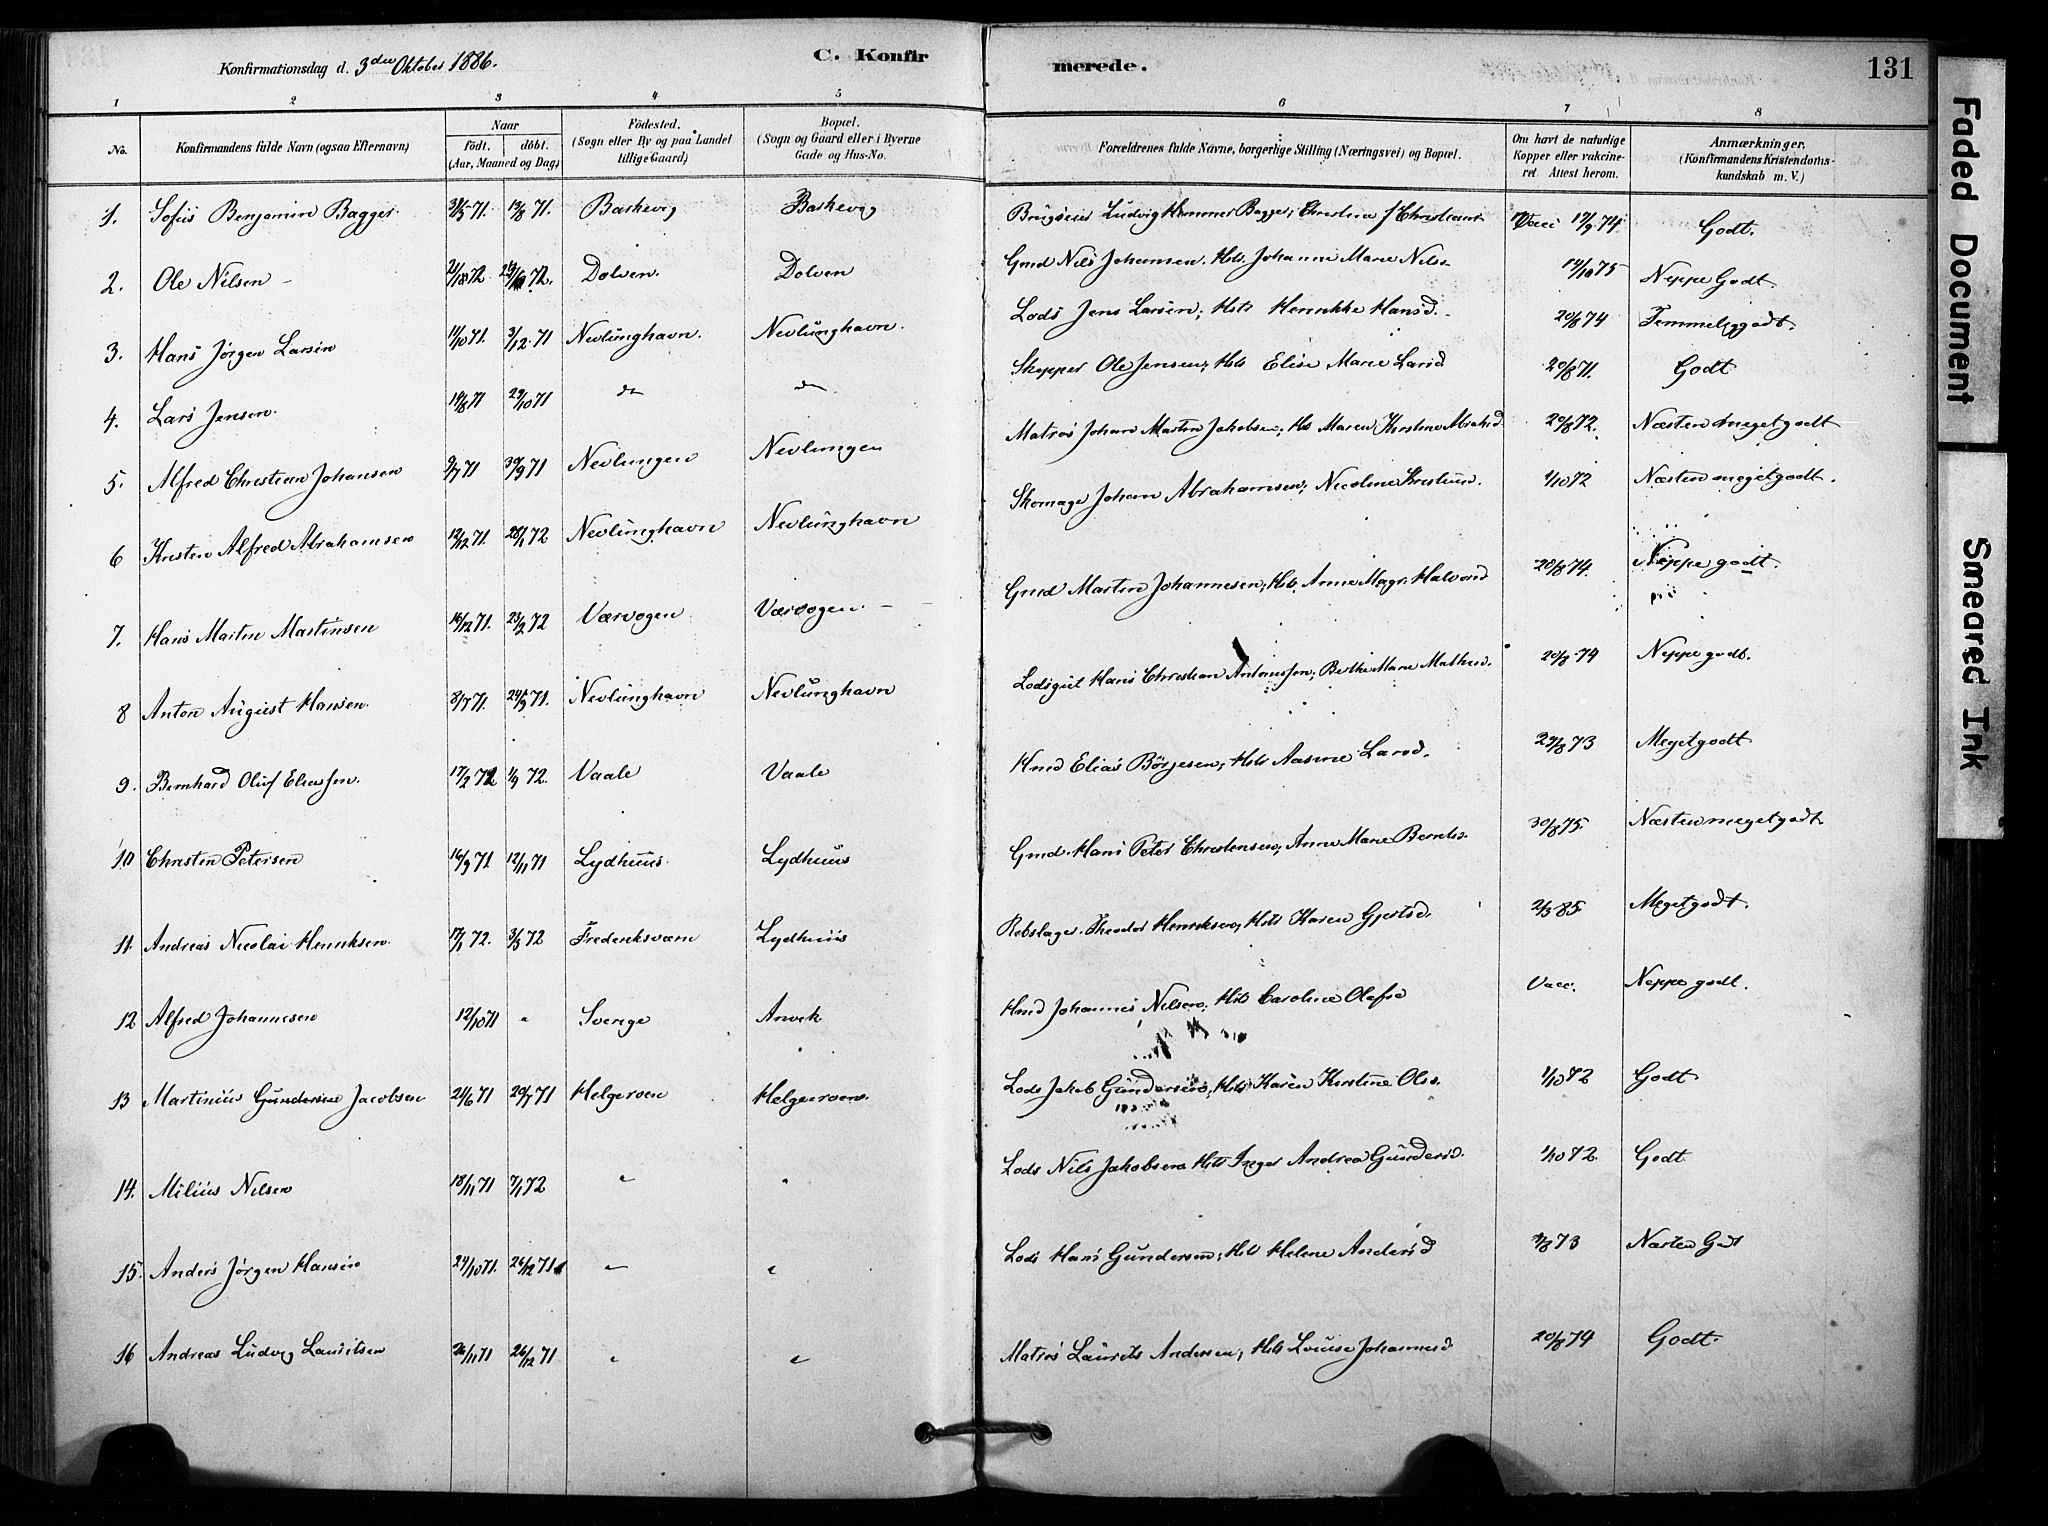 Konfirmationsdag d. 3die Oktober 1886. C. Konfirmerede. 131
1 2 3 4 5 6 7 8
No. Konfirmandens fulde Navn (ogsaa Efternavn) Naar födt. döbt. (Aar, Maaned og Dag) Födested. (Sogn eller By og paa Landet tillige Gaard) Bopæl. (Sogn og Gaard eller i Byerne Gade og Hus-No. Forældrenes fulde Navne, borgerlige Stilling (Næringsvei) og Bopæl. Om havt de naturlige Kopper eller vakcineret. Attest herom. Anmærkninger. (Konfirmandens Kristendomskundskab m. V.)
1. Sofus Benjamin Bagger. 31/5 71. 13/8 71. Barkevig Barkevig Ludvig Hemmer Bagger; Christine Vacc 17/9 74. Godt.
2. Ole Nilsen 72. 72. Dolven. Dolven Gmd Nils Johansen. Hst. Johanne Marie Nilsd 14/10 75 Neppe Godt.
3. Hans Jørgen Larsen 11/10 71. 3/12 71 Nevlunghavn. Nevlunghavn. Lods Jens Larsen; Hst Henrikke Hansd. 20/8 74 Temmelig godt.
4. Lars Jensen. 19/8 71 29/10 71 do do Skipper Ole Jensen; Hst Elise Marie Larsd 20/8 71. Godt
5. Alfred Christian Johansen 9/7 71 30/9 71 Nevlungen Nevlungen Matros Johan Martin Jakobsen; Hst Maren Kirstine Abrahd. 20/8 72. Næsten meget godt
6 Kristen Alfred Abrahamsen 12/12 71. 28/1 72 Nevlunghavn Nevlunghavn Skomager Johan Abrahamsen; Nicoline 1/10 72 Næsten meget godt.
7. Hans Martin Martinsen 16/12 71. 25/2 72 Værvogen Værvogen. Gmd Martin Johannesen; Hst. Anne Magr. Halvorsd 20/8 74. Neppe godt.
8 Anton August Hansen. 3/7 71. 24/9 71. Nevlunghavn Nevlunghavn Lodsgut Hans Christian Antonssen; Berthe Marie Mathisd. 20/8 74 Neppe godt.
9. Bernhard Oluf Eliassen. 17/2 72 1/9 72. Vaale Vaale Hmd Elias Börjesen; Hst Aasine Larsd. 29/8 73 Meget godt
10 Christen Petersen 16/9 71 12/11 71 Lydhuus. Lydhuus Gmd. Hans Peter Christensen; Anne Marie Berntsd. 30/8 75. Næsten meget godt
11. Andreas Nicolai Henriksen. 17/1 72. 3/3 72 Frederiksværn Lydhuus Rebslager. Theodor Henriksen; Hst Karen Gjertsd. 2/3 85. Meget godt.
12 Alfred Johannesen 12/10 71 " Sverige Anvik Hmd Johannes Nilsen; Hst Caroline Olafsd Vacc. Neppe godt.
13 Martinius Gundersen Jacobsen 21/6 71 20/7 71 Helgeroen Helgeroen. Lods Jakob Gundersen; Hst Karen Kirstine Olsd. 1/10 72 Godt
14. Milius Nilsen 18/11 71 7/1 72 " " Lods Nils Jakobsen Hst Inger Andrea Gundersd. 1/10 72. Godt
15. Anders Jørgen Hansen 24/10 71. 26/12 71 " " Lods Hans Gundersen; Hst Helene Andersd 9/8 73 Næsten Godt
16 Andreas Ludvig Lauritsen 26/11 71 26/12 71 " " Matros Laurits Andersen; Hst Louise Johannesd. 20/8 74 Godt.
Faded Document
Smeared Ink